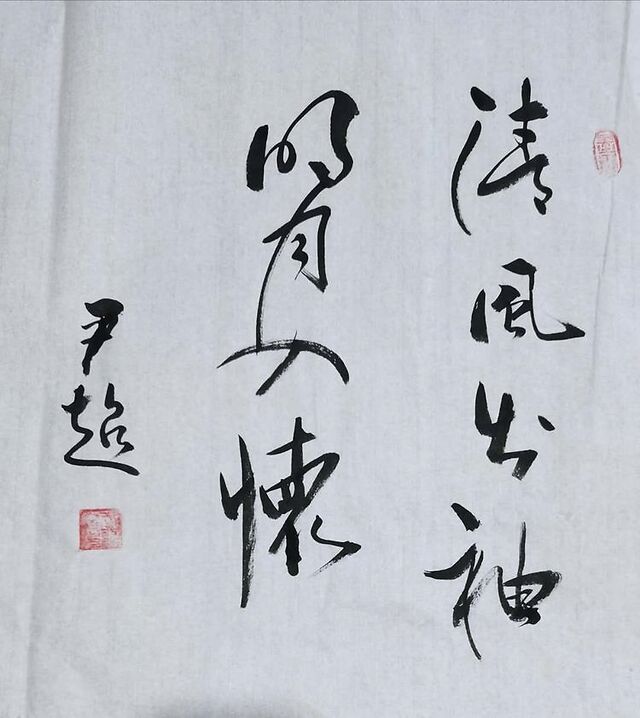 清风出袖
明月入怀
尹超